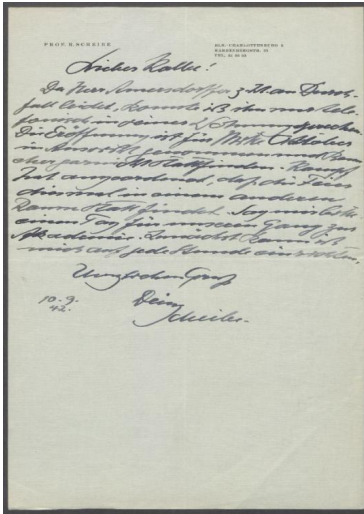 PROF. R. SCHEIBE
BLN.-CHARLOTTENBURG 2
HARDENBERGSTR. 33
TEL.
Lieber Kolbe!
Da Herr Amersdorffer z. Zt. an Durch-
fall leidet, konnte ich ihn nur tele-
fonisch in seiner sprechen.
Die Eröffnung ist für Mitte Oktober
in Aussicht genommen und kann
eher garnicht stattfinden. Kampf
hat angeordnet, daß die Feier
diesmal in einem anderen
Raum stattfindet. Sag mir bitte
einen Tag für unseren Gang zur
Akademie. Zunächst kann ich
mich auf jede Stunde einrichten.
Herzlichen Gruß
10.9. Dein
42. Scheibe.